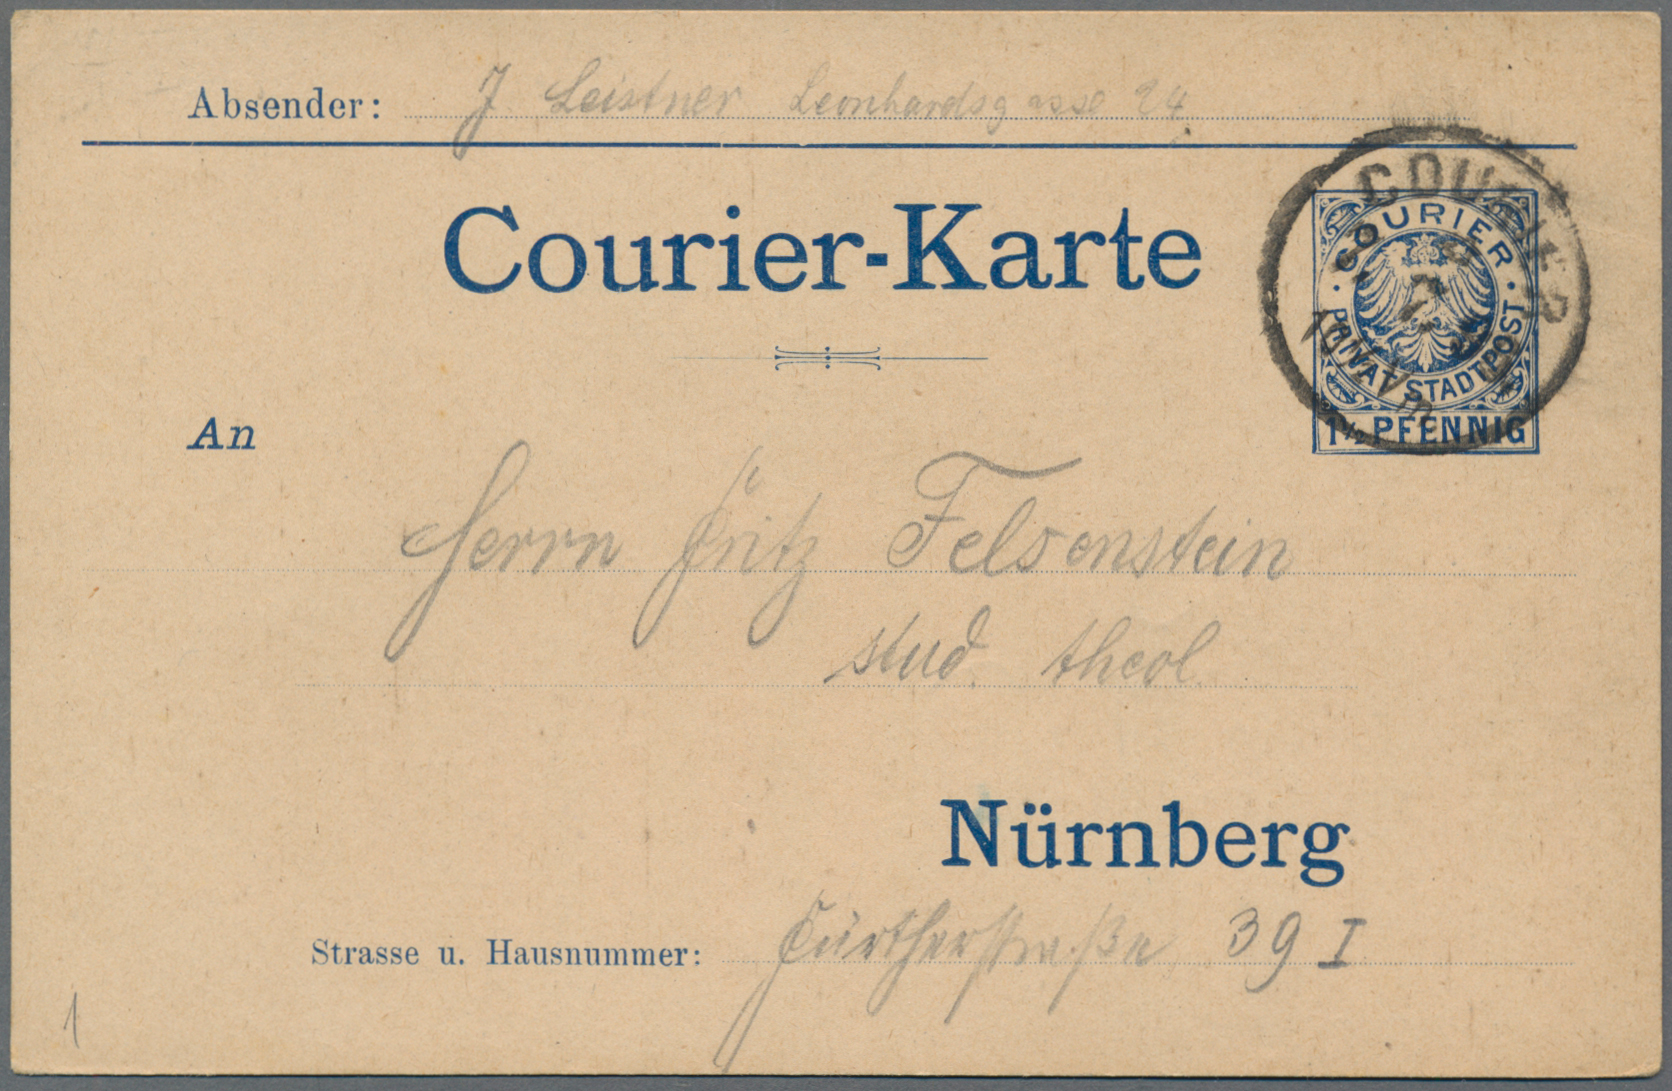 Absender: J Leistner Leonhardsgasse 24
Courier-Karte
COURIER
COURIER
PRIVAT-STADTPOST
1½ PFENNIG
An
Herrn Fritz Felsenstein
stud. theol.
Nürnberg
Strasse u. Hausnummer: Fürtherstraße 39 I
1